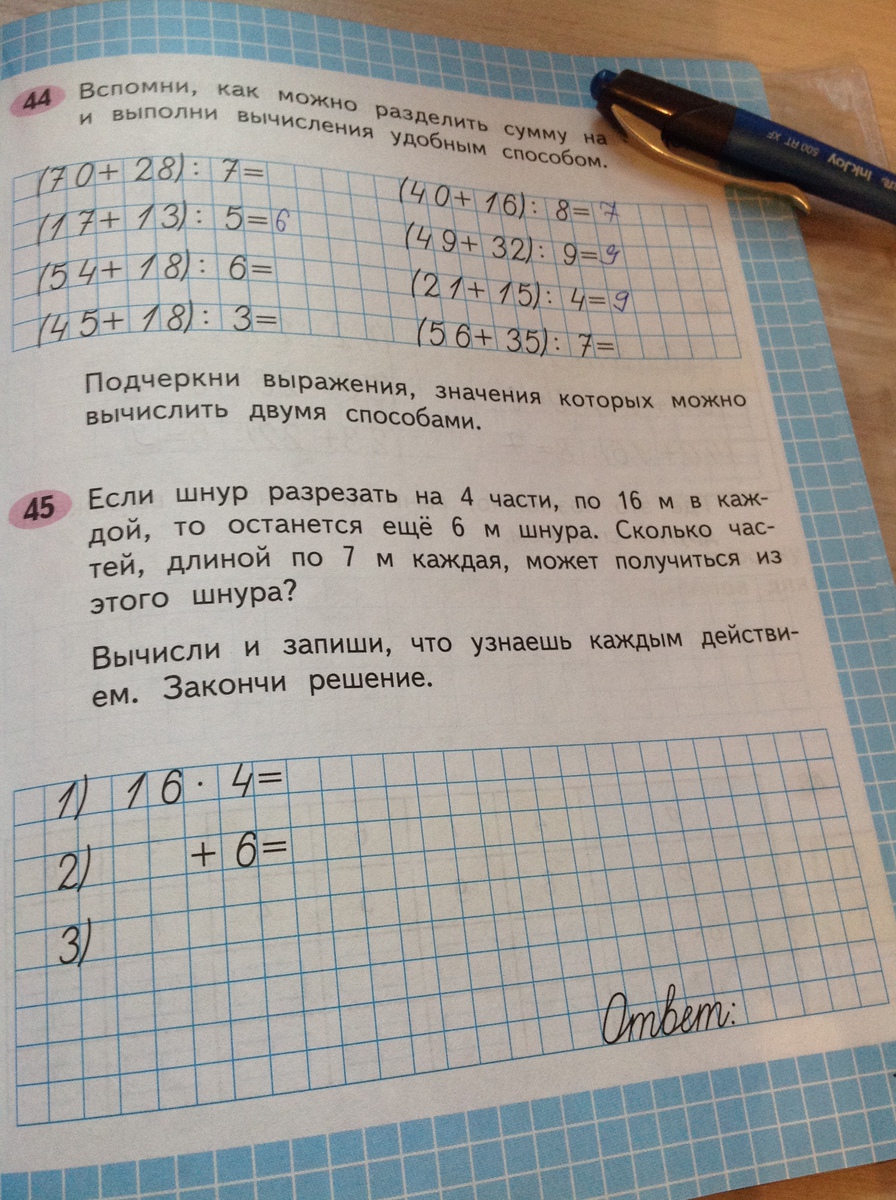 44 Вспомни, как можно разделить сумму на
и выполни вычисления удобным способом.
(70+28): 7=
(17+13): 5=6
(54+18): 6=
(45+18): 3=
(40+16): 8=7
(49+32): 9=9
(21+15): 4=9
(56+35): 7=
Подчеркни выражения, значения которых можно
вычислить двумя способами.
45 Если шнур разрезать на 4 части, по 16 м в каж-
дой, то останется ещё 6 м шнура. Сколько час-
тей, длиной по 7 м каждая, может получиться из
этого шнура?
Вычисли и запиши, что узнаешь каждым действи-
ем. Закончи решение.
1) 16· 4=
2) + 6=
3)
Ответ:
InkJoy 500 RT XF